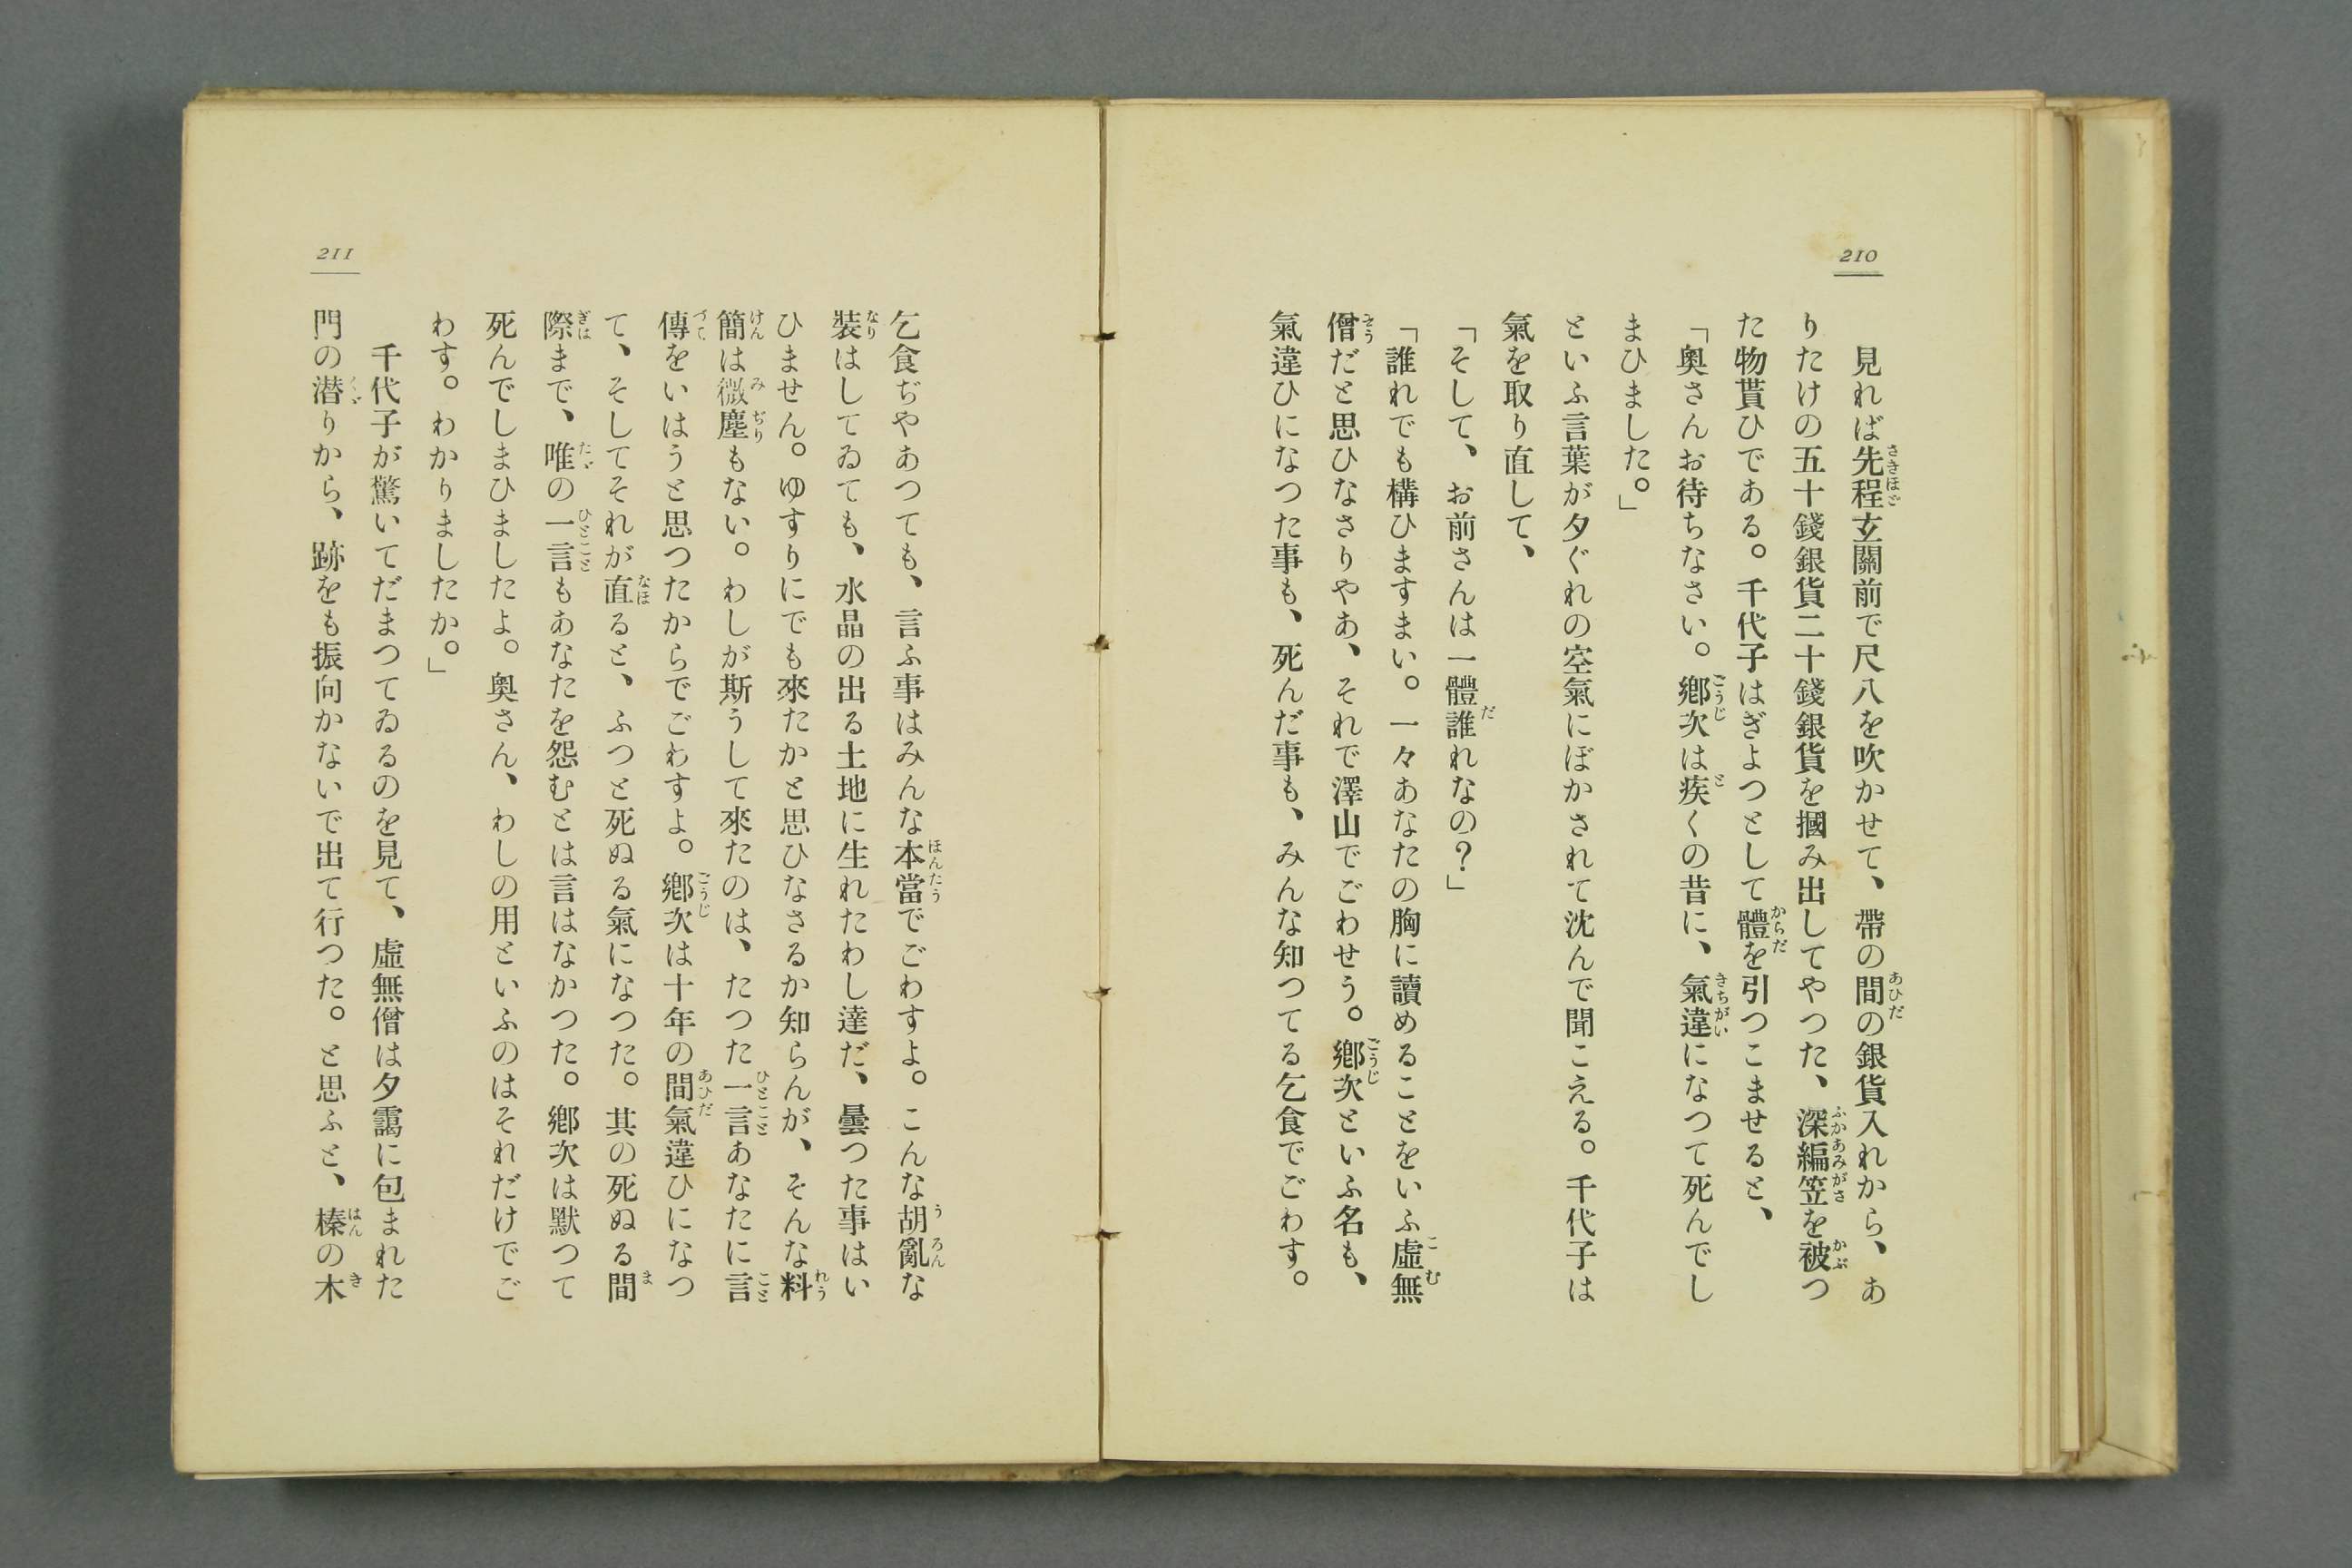 210
見れば先程玄關前で尺八を吹かせて、帶の間の銀貨入れから、あ
りたけの五十錢銀貨二十錢銀貨を摑み出してやつた、深編笠を被つ
た物貰ひである。千代子はぎよつとして體を引つこませると、
「奧さんお待ちなさい。鄕次は疾くの昔に、氣違になつて死んでし
まひました。」
といふ言葉が夕ぐれの空氣にぼかされて沈んで聞こえる。千代子は
氣を取り直して、
「そして、お前さんは一體誰れなの？」
「誰れでも構ひますまい。一々あなたの胸に讀めることをいふ虛無
僧だと思ひなさりやあ、それで澤山でごわせう。鄕次といふ名も、
氣違ひになつた事も、死んだ事も、みんな知つてる乞食でごわす。
211
乞食ぢやあつても、言ふ事はみんな本當でごわすよ。こんな胡亂な
裝はしてゐても、水晶の出る土地に生れたわし達だ、曇つた事はい
ひません。ゆすりにでも來たかと思ひなさるか知らんが、そんな料
簡は微塵もない。わしが斯うして來たのは、たつた一言あなたに言
傳をいはうと思つたからでごわすよ。鄕次は十年の間氣違ひになつ
て、そしてそれが直ると、ふつと死ぬる氣になつた。其の死ぬる間
際まで、唯の一言もあなたを怨むとは言はなかつた。鄕次は默つて
死んでしまひましたよ。奧さん、わしの用といふのはそれだけでご
わす。わかりましたか。」
千代子が驚いてだまつてゐるのを見て、虛無僧は夕靄に包まれた
門の潜りから、跡をも振向かないで出て行つた。と思ふと、榛の木